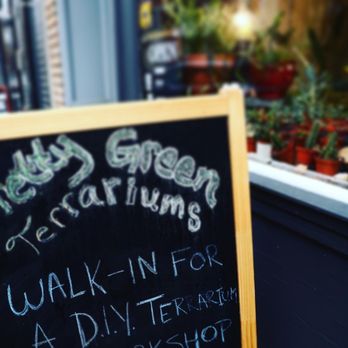 Pretty Green
Terrariums
WALK-IN FOR
A D.I.Y. TERRARIUM
WORKSHOP